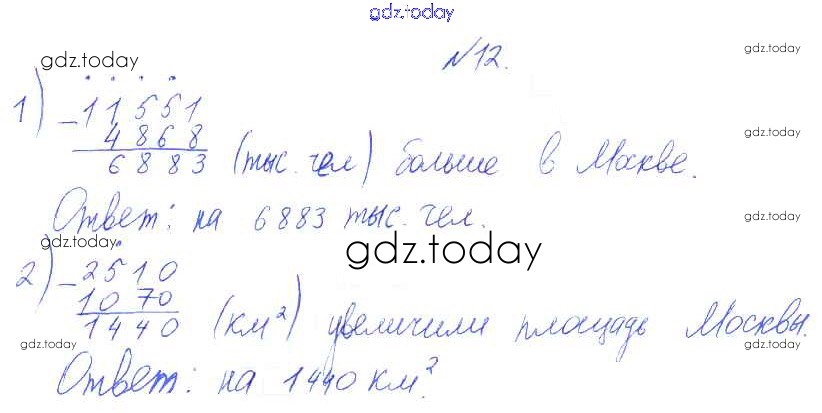 gdz.today
№12.
gdz.today gdz.today
1) - 11551
4868
6883 (тыс. чел) больше в Москве.
gdz.today gdz.today
Ответ: на 6883 тыс. чел.
gdz.today gdz.today gdz.today
2) - 2510
1070
1440 (км²) увеличили площадь Москвы.
gdz.today gdz.today gdz.today
Ответ: на 1440 км².
gdz.today